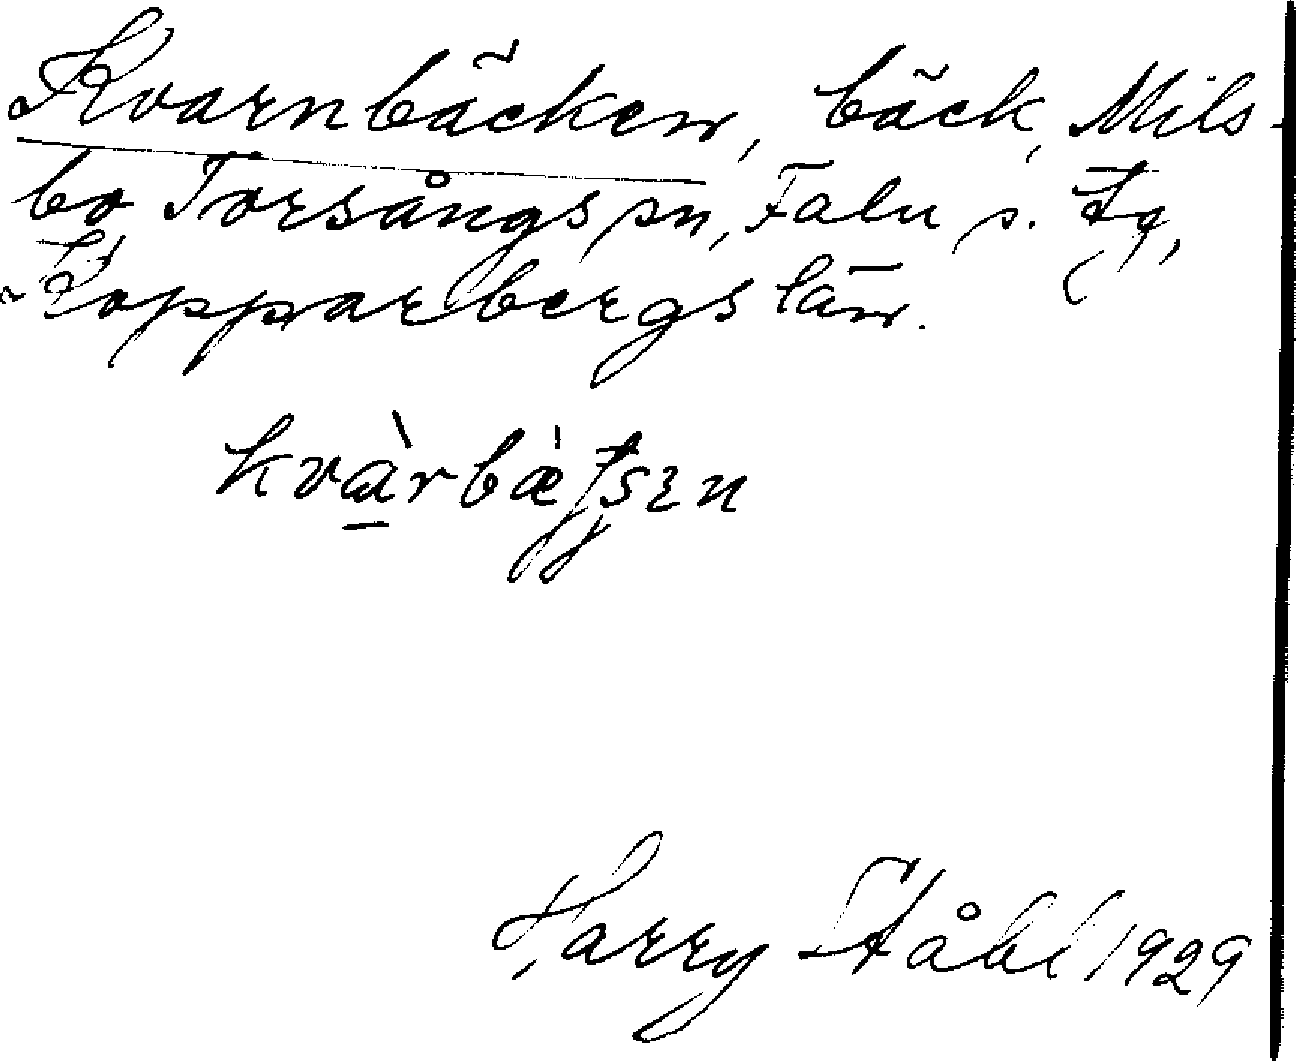 Kvarnbäcken, bäck, Mils-
bo, Torsångs sn, Falu s. tg,
Kopparbergs län.
Harry Ståhl 1929